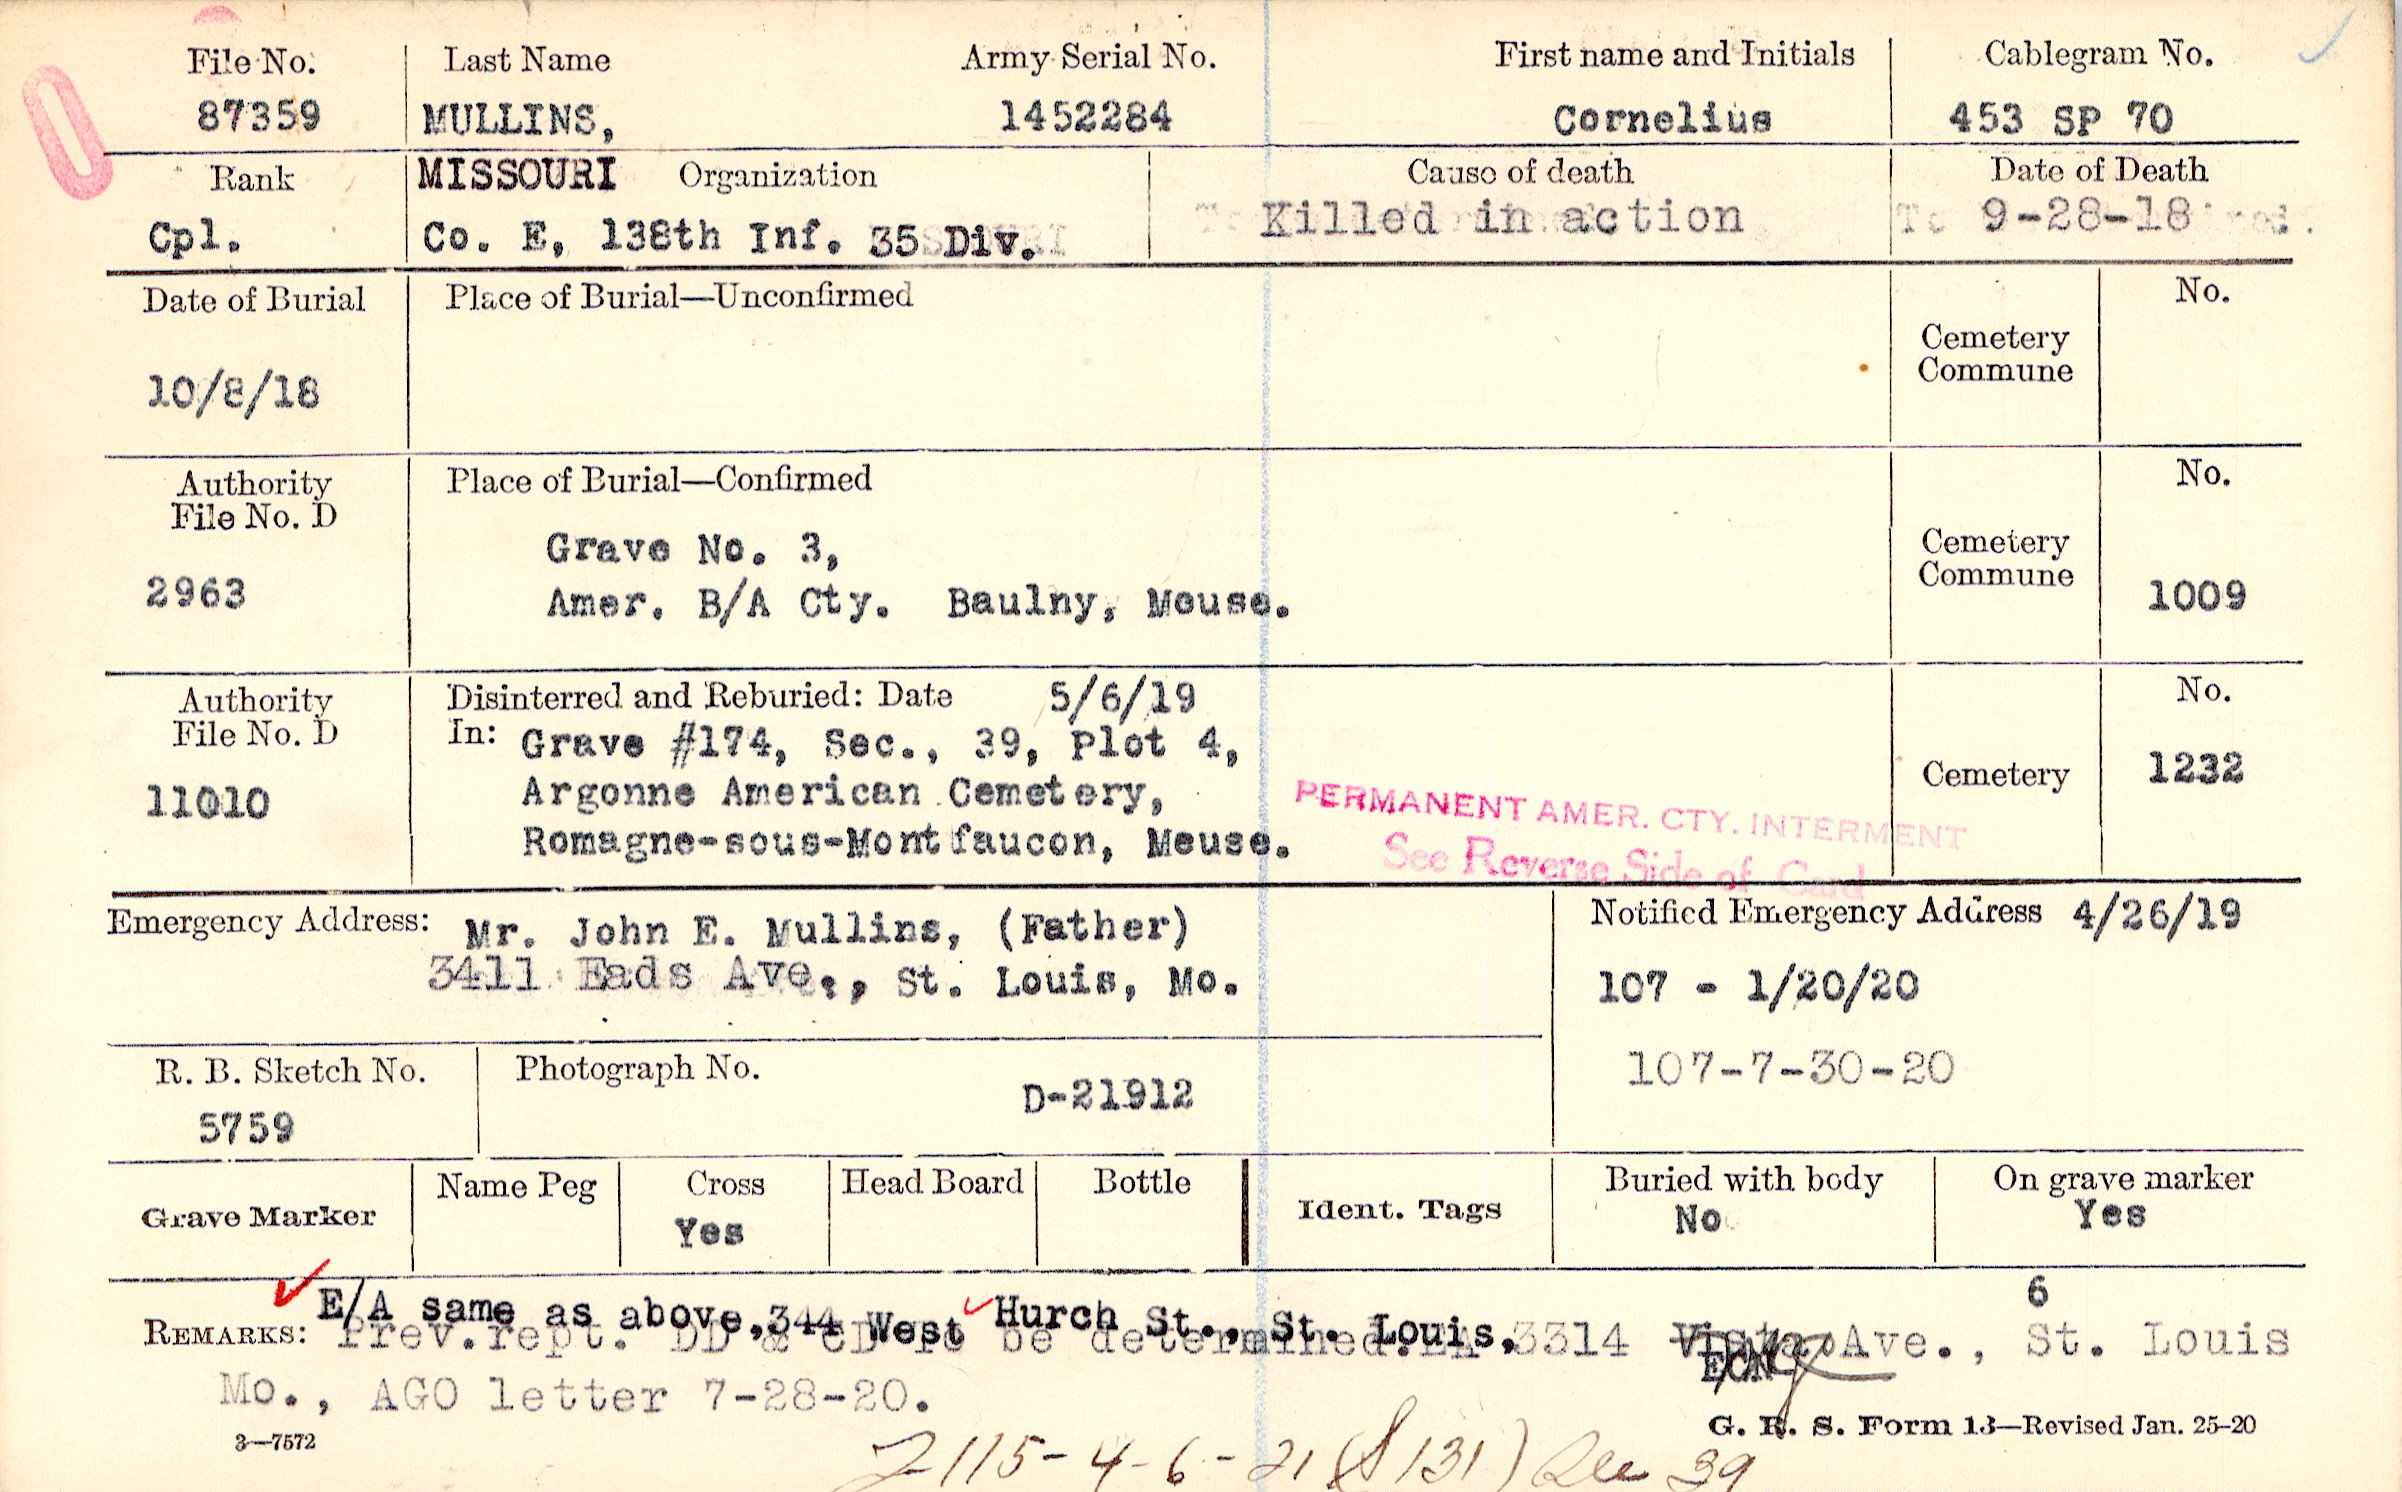 File No. Last Name Army Serial No. First name and Initials Cablegram No.
87359 MULLINS, 1452284 Cornelius 453 SP 70
Rank MISSOURI Organization Cause of death Date of Death
Cpl. Co. E, 138th Inf. 35 Div. Killed in action 9-28-18
Date of Burial Place of Burial—Unconfirmed No.
Cemetery
Commune
10/8/18
Authority Place of Burial—Confirmed No.
File No. D
Grave No. 3, Cemetery
2963 Amer. B/A Cty. Baulny, Meuse. Commune 1009
Authority Disinterred and Reburied: Date 5/6/19 No.
File No. D In: Grave #174, Sec., 39, Plot 4,
11010 Argonne American Cemetery, Cemetery 1232
Romagne-sous-Montfaucon, Meuse.
PERMANENT AMER. CTY. INTERMENT
See Reverse Side of Card
Emergency Address: Mr. John E. Mullins, (Father) Notified Emergency Address 4/26/19
3411 Eads Ave., St. Louis, Mo. 107 - 1/20/20
107-7-30-20
R. B. Sketch No. Photograph No.
5759 D-21912
Grave Marker Name Peg Cross Head Board Bottle Ident. Tags Buried with body On grave marker
Yes No Yes
6
E/A same as above, 344 West Hurch St., St. Louis,
REMARKS: Prev.rept. DD & CD to be determined. EA 3314 Ave., St. Louis
Mo., AGO letter 7-28-20.
3—7572 G. R. S. Form 13—Revised Jan. 25-20
2115-4-6-21 (S131) 39